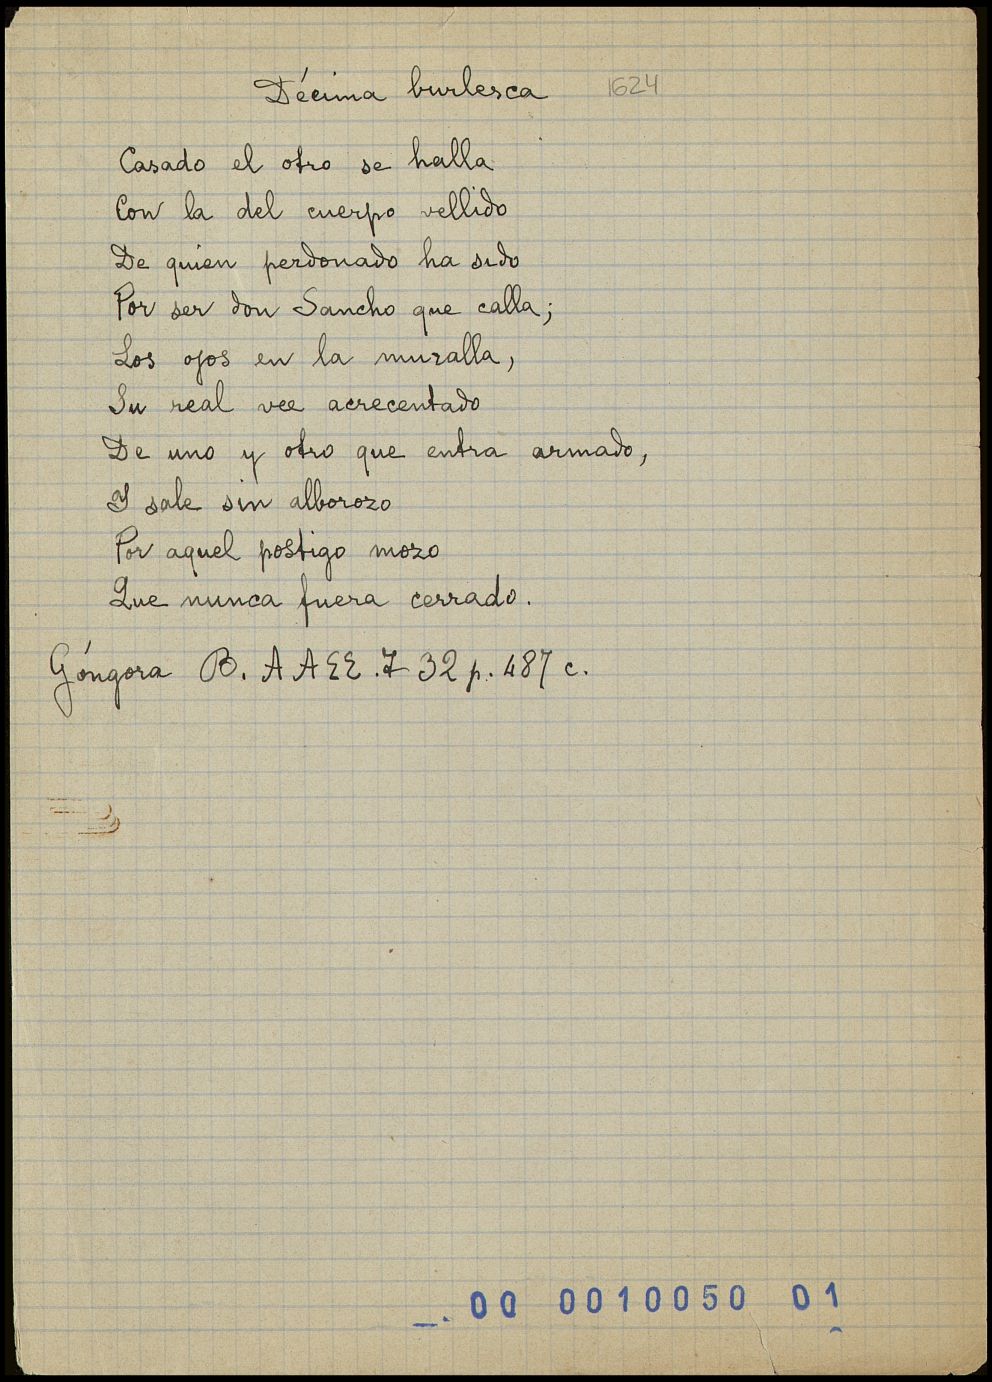 Décima burlesca 1624
Casado el otro se halla
Con la del cuerpo vellido
De quien perdonado ha sido
Por ser don Sancho que calla;
Los ojos en la muralla,
Su real vee acrecentado
De uno y otro que entra armado,
Y sale sin alborozo
Por aquel postigo mozo
Que nunca fuera cerrado.
Góngora B. AAEE. T 32 p. 487 c.
00 0010050 01